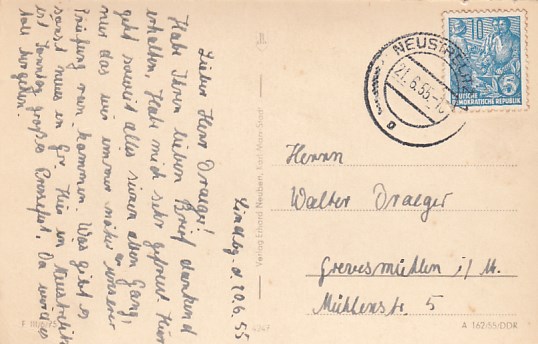 Lieber Herr Draeger!
Habe Ihren lieben Brief dankend
erhalten. Habe mich sehr gefreut. Hier
geht soweit alles seinen alten Gang,
nur das wir immer näher unserer
Prüfung ran kommen. Was gibt es
sonst neues in Gr. Hier in Neustrelitz
ist Sonntag großes Pressefest. Da wird es
toll hergehen.
d 20.6.55
Verlag Erhard Neubert, Karl-Marx-Stadt
NEUSTRELITZ
21.6.55
10
5
DEUTSCHE
DEMOKRATISCHE REPUBLIK
Herrn
Walter Draeger
Grevesmühlen i/M.
Mühlenstr. 5
A 162/55/DDR